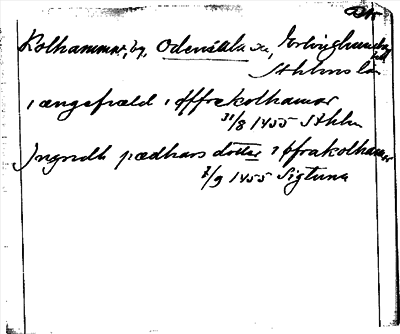 Kolhammar, by, Odensala sn, Erlinghundra hd
Sthlms län
i ængsfiæld i øffrakolhamar
31/8 1455 Sthlm
Jngridh pædhars dotter i øfrakolhamar
2/9 1455 Sigtuna